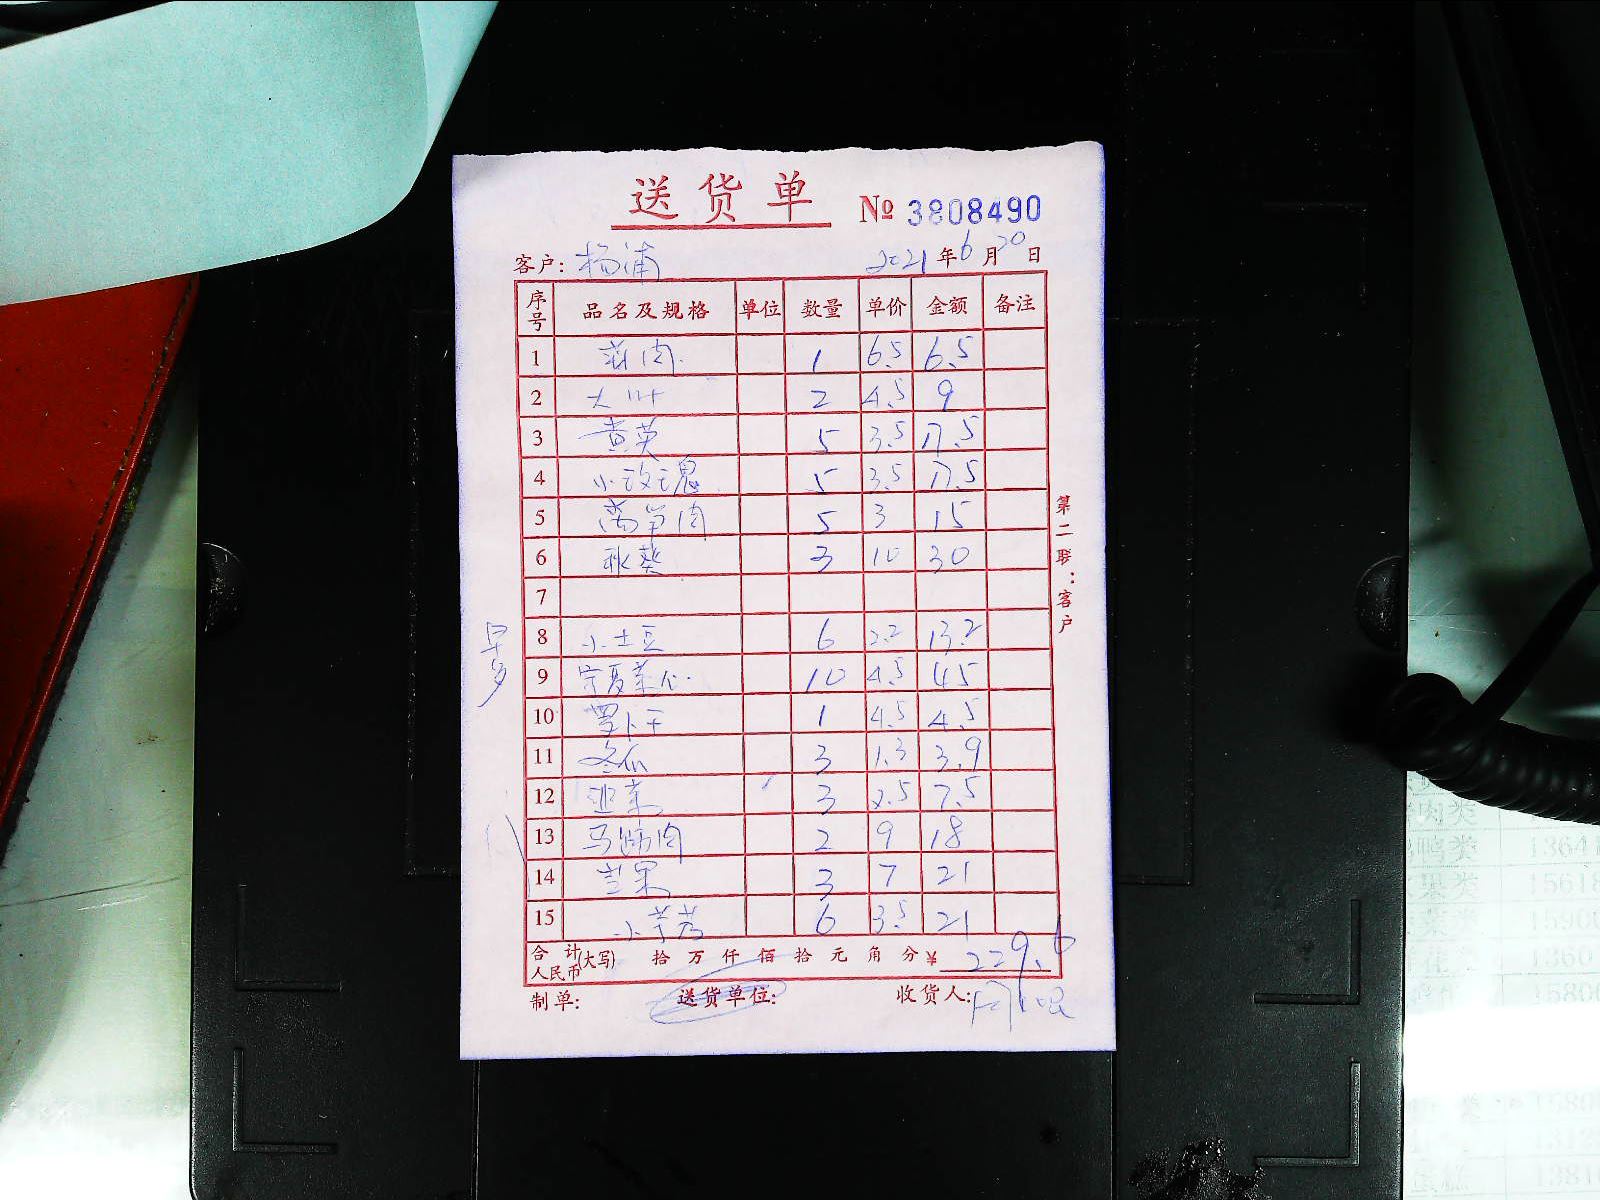 送货单 № 3808490
客户: 杨浦 2021年6月20日
序号 品名及规格 单位 数量 单价 金额 备注
1 蒜肉 1 6.5 6.5
2 大叶 2 4.5 9
3 黄英 5 3.5 17.5
4 小玫瑰 5 3.5 17.5
5 莴笋肉 5 3 15
6 秋葵 3 10 30
7
8 小土豆 6 2.2 13.2
9 宁夏菜心 10 4.5 45
10 萝卜干 1 4.5 4.5
11 冬瓜 3 1.3 3.9
12 韭菜 3 2.5 7.5
13 马蹄肉 2 9 18
14 芒果 3 7 21
15 小芋艿 6 3.5 21
合计人民币(大写) 拾 万 仟 佰 拾 元 角 分 ¥ 229.6
制单: 送货单位: 收货人:
第二联:客户
肉类
鸭类 13641
果类 15618
菜类 15900
1360
15800